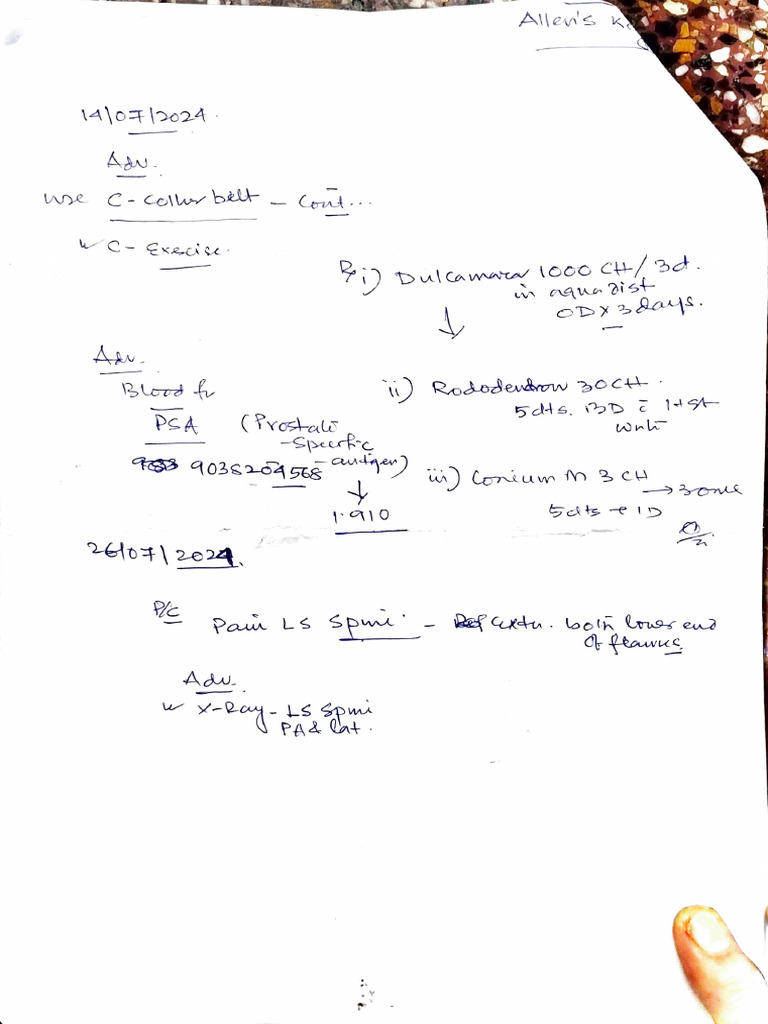 Allen's
14/07/2024.
Adv.
use C-Coller belt - Cont...
C-Execise.
Rx i) Dulcamara 1000 CH/3d.
in aqua dist
OD x 3 days.
Adv.
Blood fr
PSA (Prostate
-Specific
-antigen)
9038204568
1.910
ii) Rododendron 30 CH.
5 dts. BD c̄
iii) Conium M 3 CH
5 dts
26/07/2024.
P/c
Pain LS Spine - extn. both lower end
of
Adv.
X-Ray - LS Spine
PA & Lat.